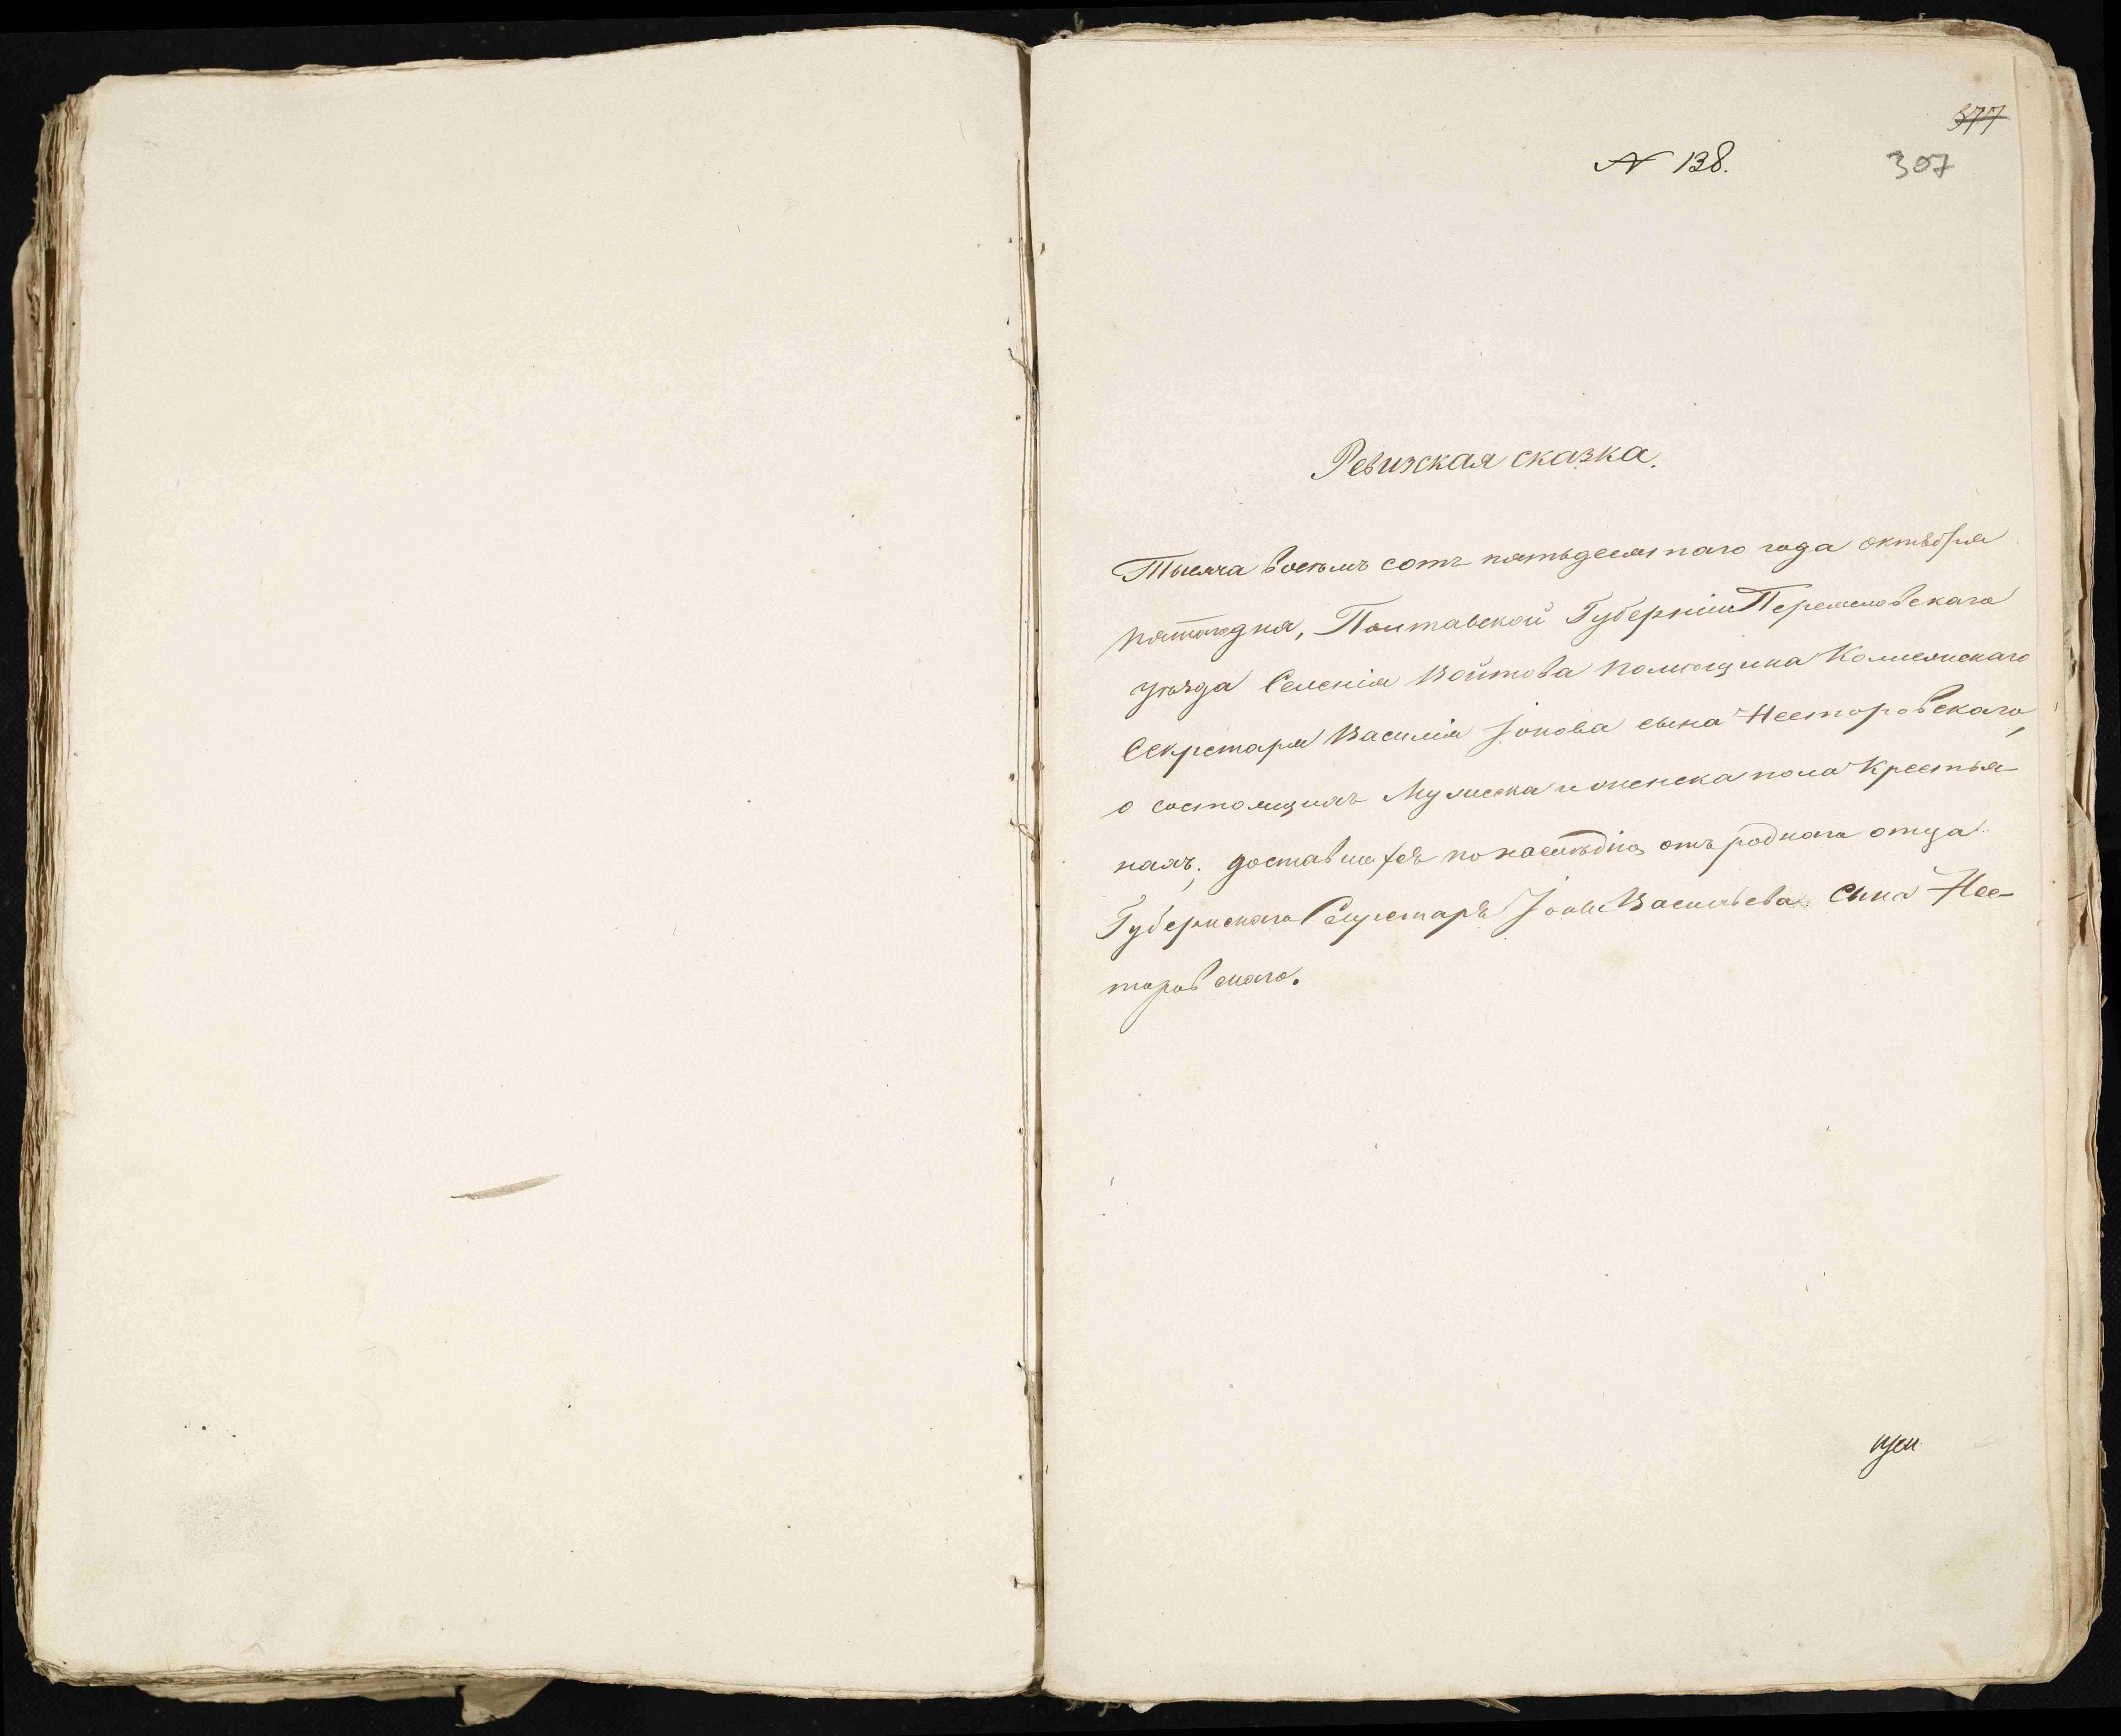 377
N 138.
307
Ревизская сказка.
Тысяча восемь сотъ пятьдесятаго года октября
пятагодня, Полтавской Губерніи Переяславскаго
уѣзда Селенія Войтова помѣщика Колежскаго
Секретаря Василія Іонова сына Несторовскаго,
о состоящихъ Мужеска и женска пола Крестья-
нахъ, доставшихся по наслѣдію отъ родного отца
Губернскаго Секретаря Іоны Васильева Сына Нес-
торовскаго.